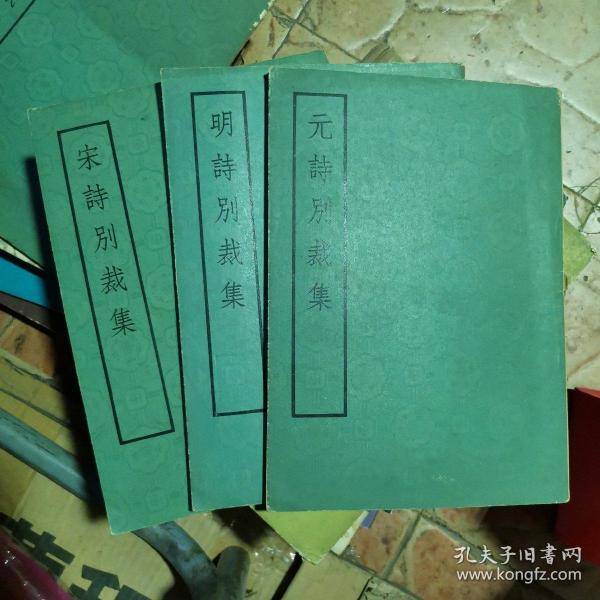 宋詩別裁集
明詩別裁集
元詩別裁集
孔夫子旧書网
www.kongfz.com